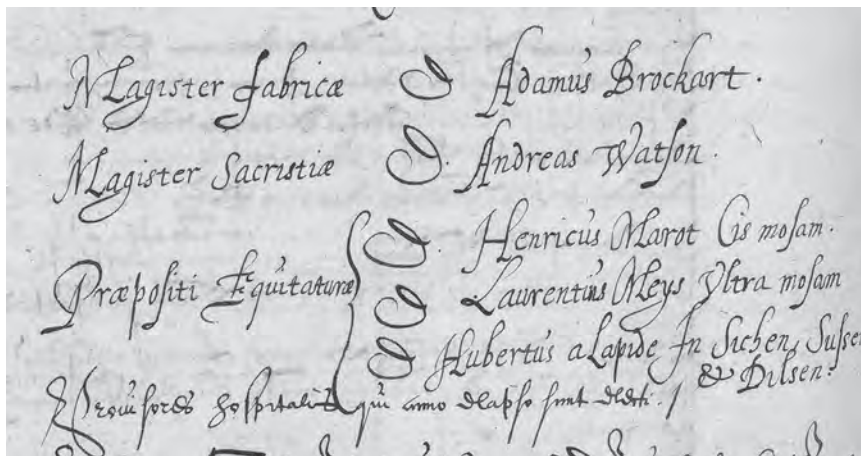 Magister fabricæ D Adamus Brockart.
Magister Sacristiæ D. Andreas Watson.
Præpositi Equitaturæ D. Henricus Marot Cis mosam.
D Laurentius Meys Vltra mosam
D Hubertus a Lapide In Sichen, Sussen
& Dilsen.
Prouisores hospitalis qui anno elapso sunt electi.